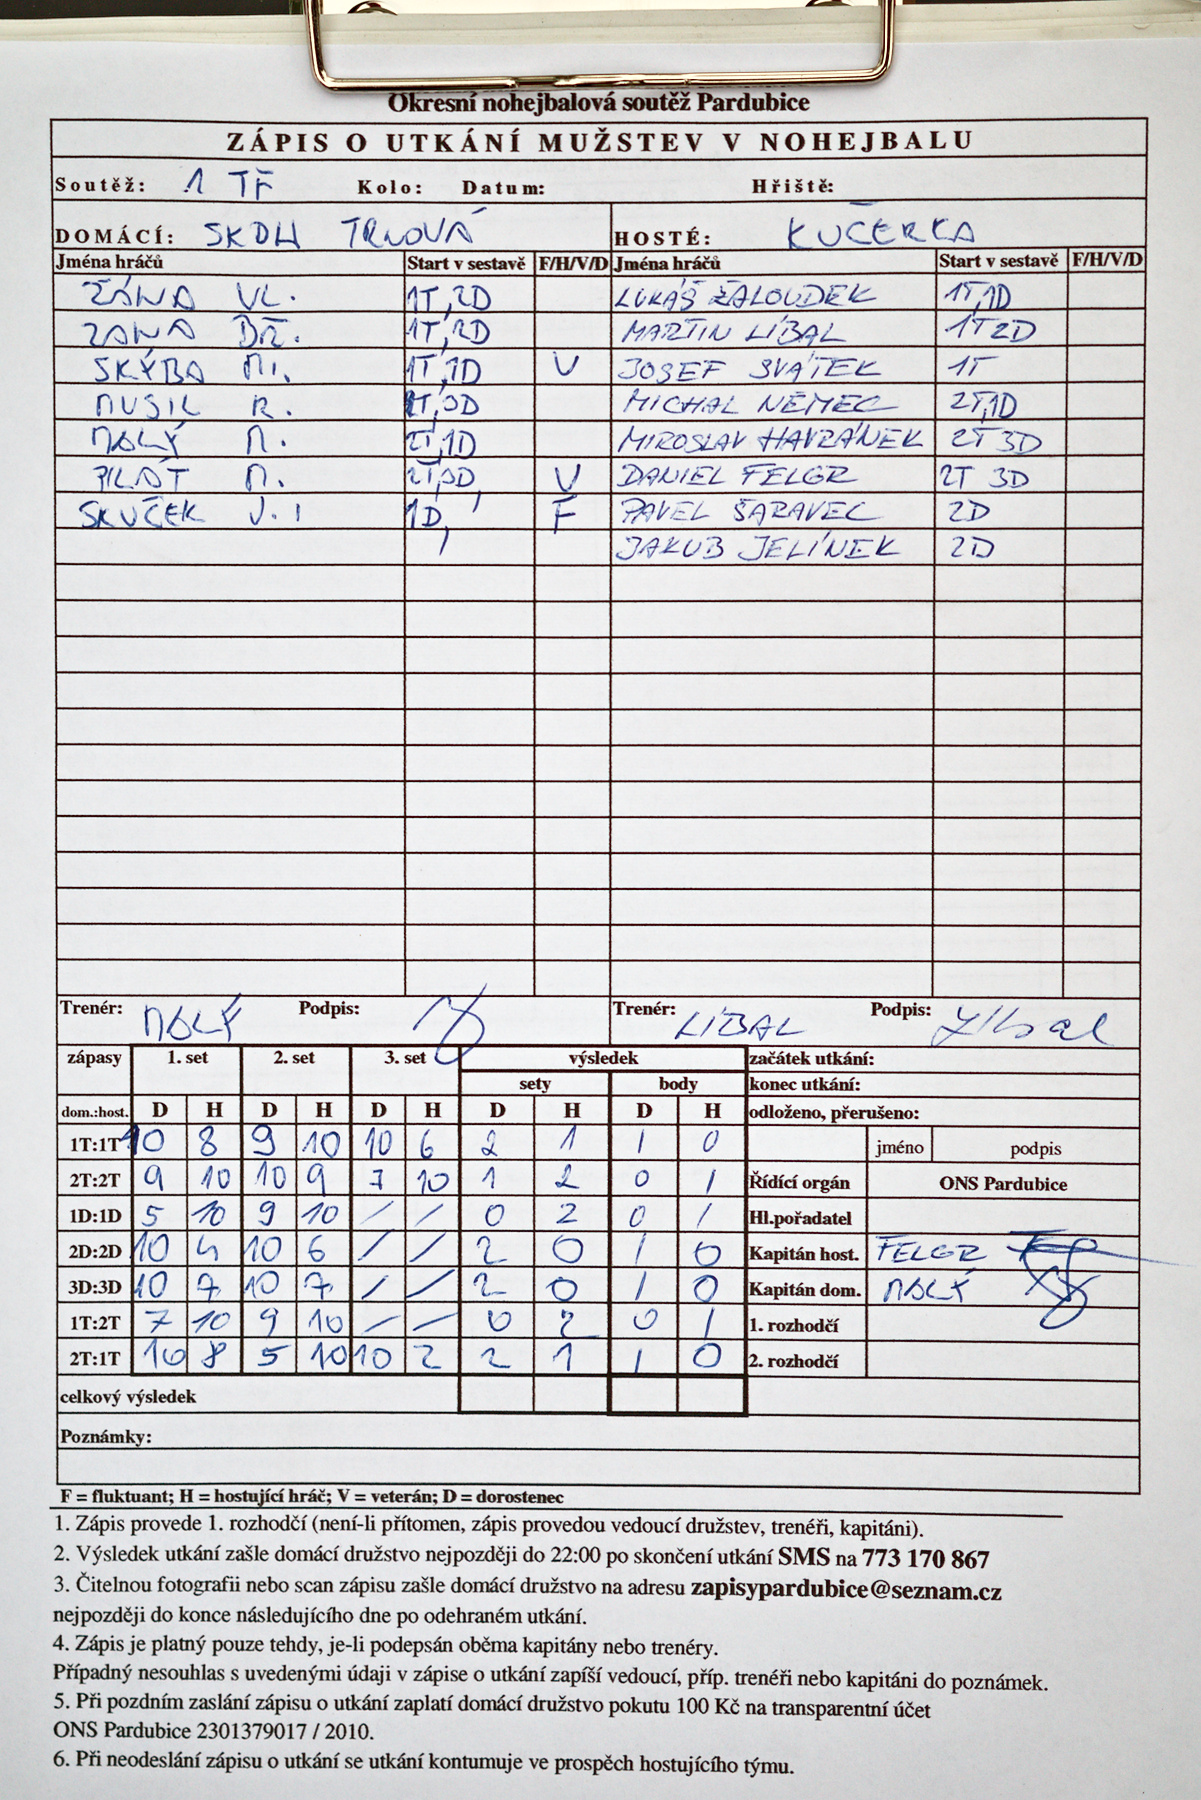 Okresní nohejbalová soutěž Pardubice
ZÁPIS O UTKÁNÍ MUŽSTEV V NOHEJBALU
Soutěž: 1 TŘ Kolo: Datum: Hřiště:
DOMÁCÍ: SKDH TRNOVÁ HOSTÉ: KUČERKA
Jména hráčů Start v sestavě F/H/V/D Jména hráčů Start v sestavě F/H/V/D
ŽÁNA VL. 1T,2D LUKÁŠ ŽALOUDEK 1T,1D
ZANA BŘ. 1T,2D MARTIN LÍBAL 1T 2D
SKÝBA MI. 1T,1D V JOSEF SVÁTEK 1T
MUSIL R. 2T,3D MICHAL NĚMEC 2T,1D
MALÝ M. 2T,1D MIROSLAV HAVRÁNEK 2T 3D
PILÁT M. 2T,3D, V DANIEL FELGR 2T 3D
SKUČEK J. 1D, F PAVEL ŠARAVEC 2D
JAKUB JELÍNEK 2D
Trenér: MALÝ Podpis: Trenér: LÍBAL Podpis: Líbal
zápasy 1. set 2. set 3. set výsledek začátek utkání:
sety body konec utkání:
dom.:host. D H D H D H D H D H odloženo, přerušeno:
1T:1T 10 8 9 10 10 6 2 1 1 0 jméno podpis
2T:2T 9 10 10 9 7 10 1 2 0 1 Řídící orgán ONS Pardubice
1D:1D 5 10 9 10 / / 0 2 0 1 Hl.pořadatel
2D:2D 10 4 10 6 / / 2 0 1 0 Kapitán host. FELGR
3D:3D 10 7 10 7 / / 2 0 1 0 Kapitán dom. MALÝ
1T:2T 7 10 9 10 / / 0 2 0 1 1. rozhodčí
2T:1T 10 8 5 10 10 2 2 1 1 0 2. rozhodčí
celkový výsledek
Poznámky:
F = fluktuant; H = hostující hráč; V = veterán; D = dorostenec
1. Zápis provede 1. rozhodčí (není-li přítomen, zápis provedou vedoucí družstev, trenéři, kapitáni).
2. Výsledek utkání zašle domácí družstvo nejpozději do 22:00 po skončení utkání SMS na 773 170 867
3. Čitelnou fotografii nebo scan zápisu zašle domácí družstvo na adresu zapisypardubice@seznam.cz
nejpozději do konce následujícího dne po odehraném utkání.
4. Zápis je platný pouze tehdy, je-li podepsán oběma kapitány nebo trenéry.
Případný nesouhlas s uvedenými údaji v zápise o utkání zapíší vedoucí, příp. trenéři nebo kapitáni do poznámek.
5. Při pozdním zaslání zápisu o utkání zaplatí domácí družstvo pokutu 100 Kč na transparentní účet
ONS Pardubice 2301379017 / 2010.
6. Při neodeslání zápisu o utkání se utkání kontumuje ve prospěch hostujícího týmu.